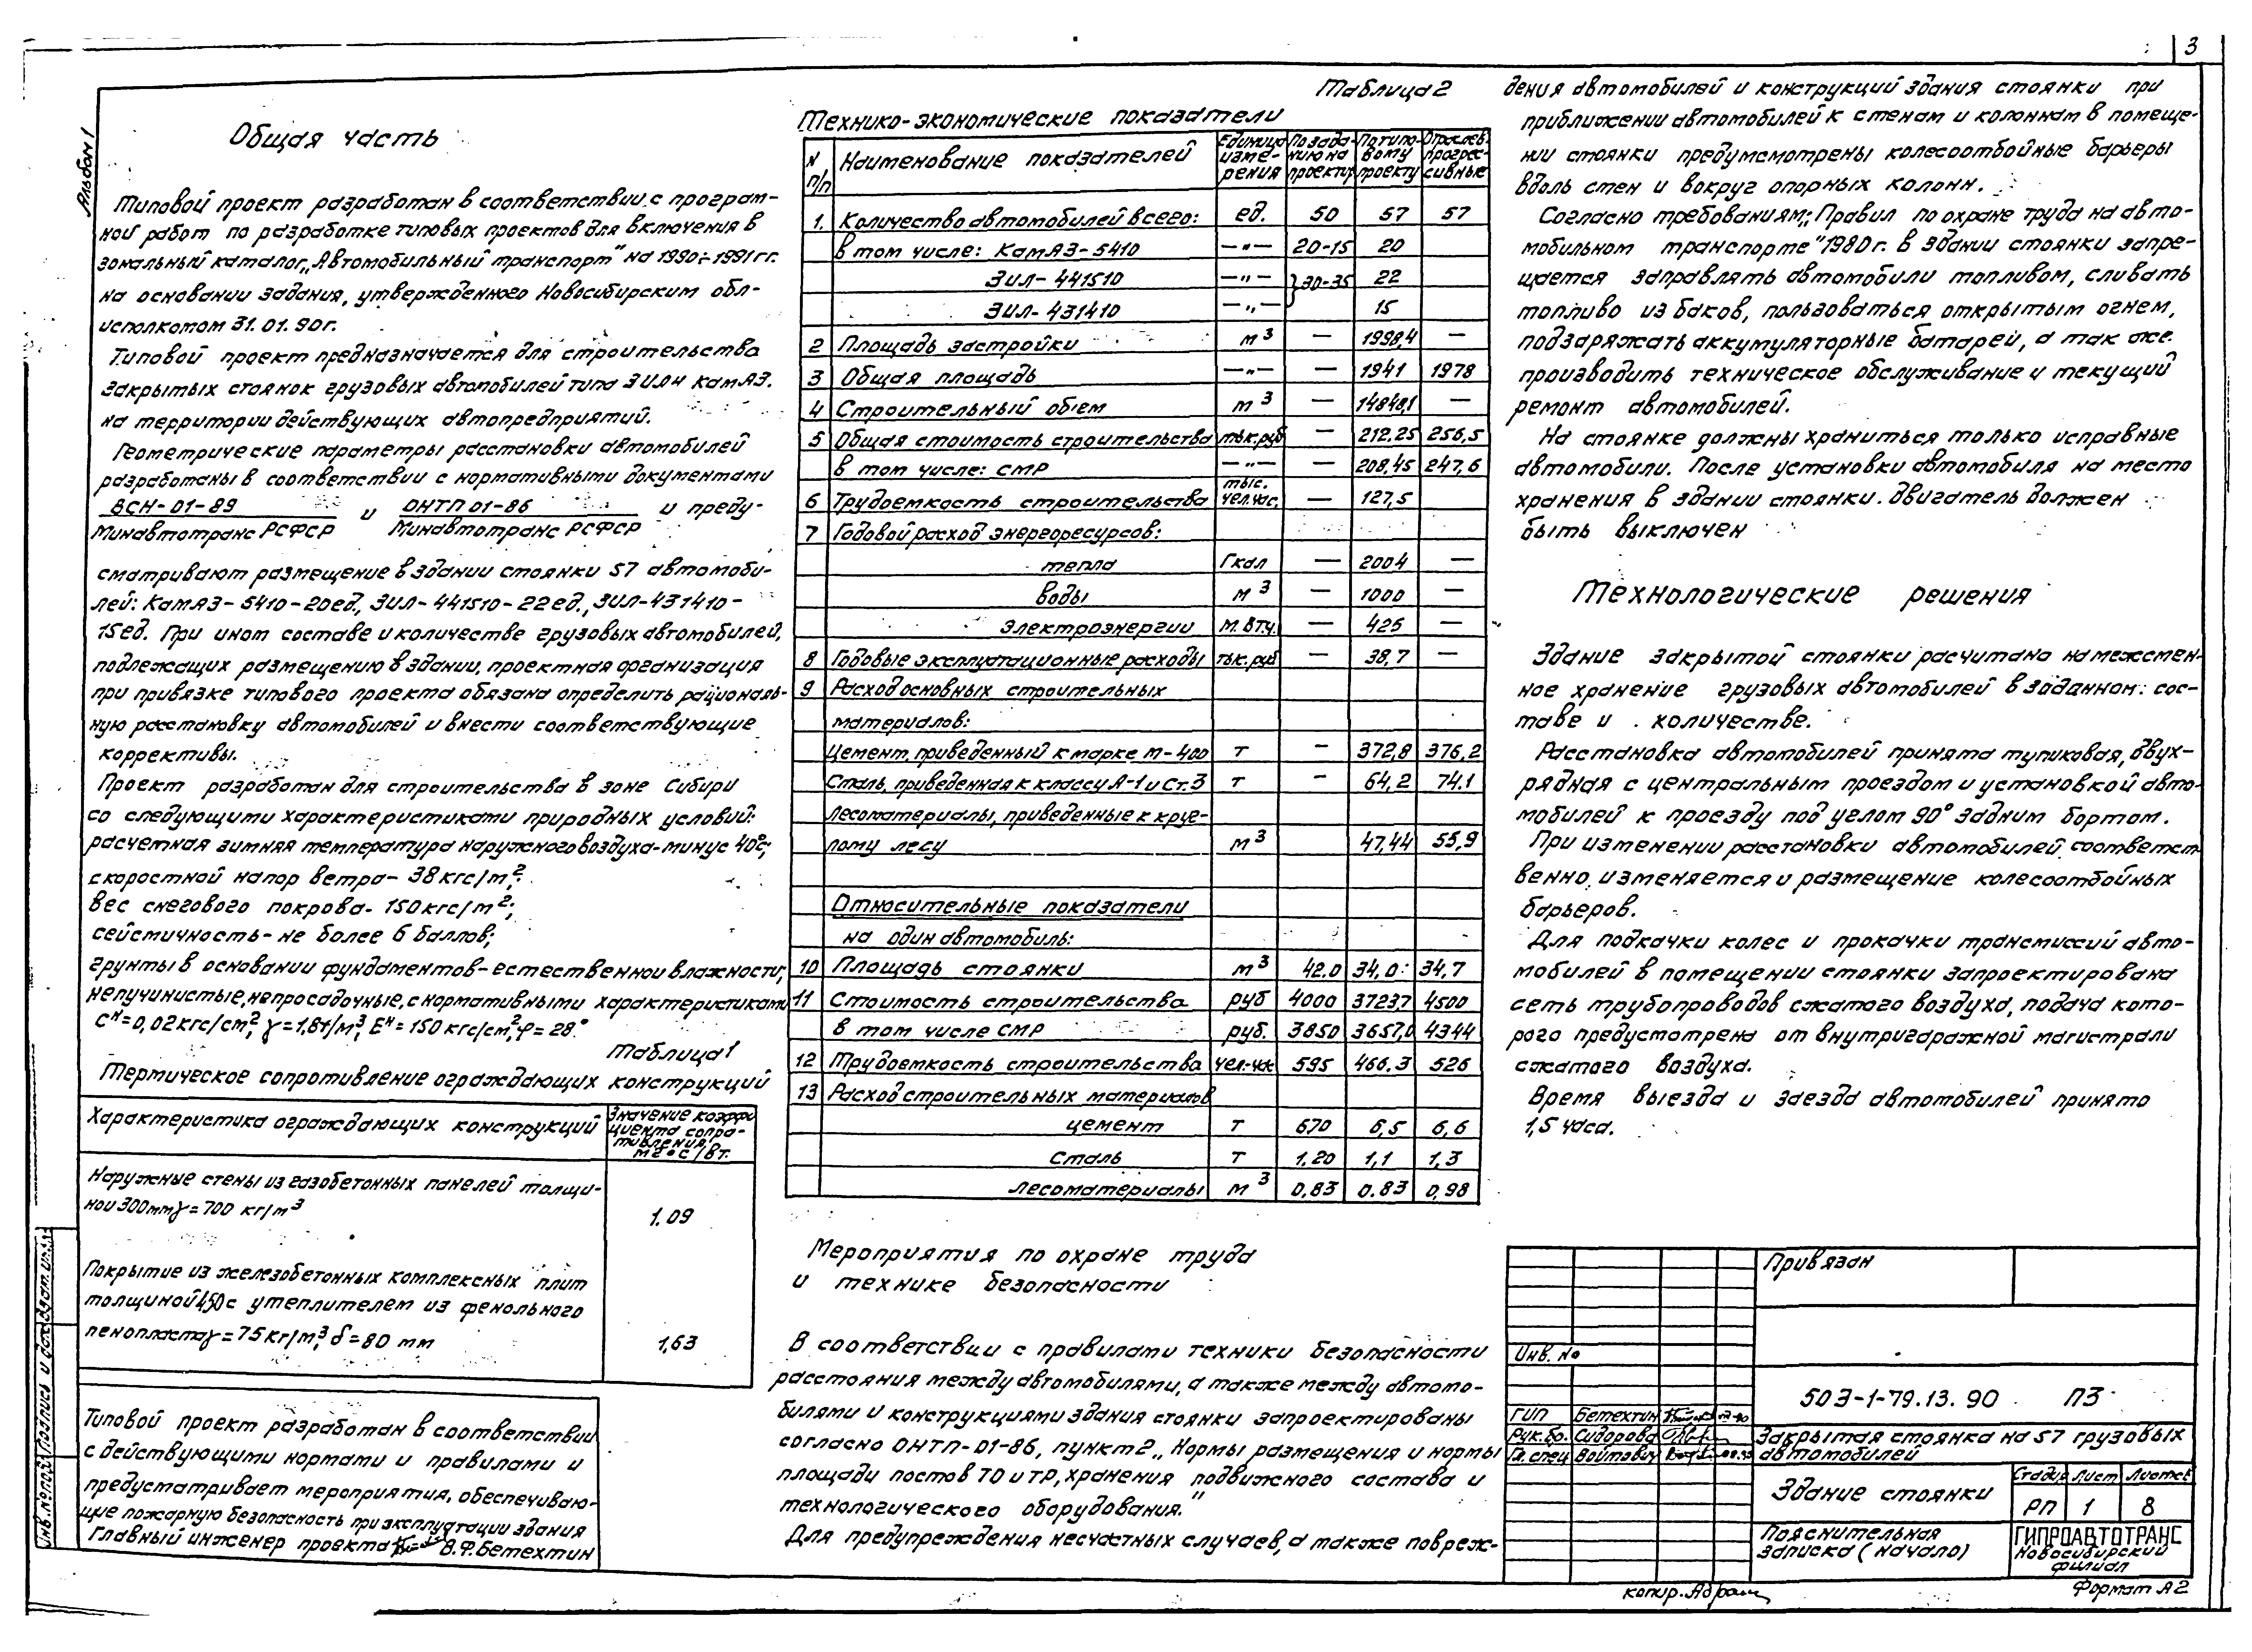 3
Альбом 1
Общая часть
Типовой проект разработан в соответствии с програм-
ной работ по разработке типовых проектов для включения в
зональный каталог „Автомобильный транспорт" на 1990÷1991 гг.
на основании задания, утвержденного Новосибирским обл-
исполкомом 31.01.90г.
Типовой проект предназначается для строительства
закрытых стоянок грузовых автомобилей типа ЗИЛ и КамАЗ.
на территории действующих автопредприятий.
Геометрические параметры расстановки автомобилей
разработаны в соответствии с нормативными документами
ВСН-01-89 и ОНТП 01-86 и преду-
Минавтотранс РСФСР Минавтотранс РСФСР
сматривают размещение в здании стоянки 57 автомоби-
лей: КамАЗ-5410-20ед., ЗИЛ-441510-22ед., ЗИЛ-431410-
15ед. При ином составе и количестве грузовых автомобилей,
подлежащих размещению в здании, проектная организация
при привязке типового проекта обязана определить рациональ-
ную расстановку автомобилей и внести соответствующие
коррективы.
Проект разработан для строительства в зоне Сибири
со следующими характеристиками природных условий:
расчетная зимняя температура наружного воздуха-минус 40°с;
скоростной напор ветра-38кгс/м²;
вес снегового покрова-150кгс/м²;
сейсмичность-не более 6 баллов;
грунты в основании фундаментов-естественной влажности,
непучинистые, непросадочные, с нормативными характеристиками
Cᴴ=0,02кгс/см², γ=1,8т/м³, Eᴴ=150кгс/см², φ=28°
Таблица 1
Термическое сопротивление ограждающих конструкций
Характеристика ограждающих конструкций
Значение коэффи
циента сопро-
тивления,
м²°с/Вт.
Наружные стены из газобетонных панелей толщи-
ной 300мм γ=700 кг/м³
1.09
Покрытие из железобетонных комплексных плит
толщиной 450 с утеплителем из фенольного
пенопласта γ=75кг/м³, δ=80 мм
1,63
Типовой проект разработан в соответствии
с действующими нормами и правилами и
предусматривает мероприятия, обеспечиваю-
щие пожарную безопасность при эксплуатации здания
Главный инженер проекта В.Ф.Бетехтин
Таблица 2
Технико-экономические показатели
N п/п Наименование показателей Единица изме-рения По зада-нию на проект По типо-вому проекту Отраслев. прогрес-сивные
1. Количество автомобилей всего: ед. 50 57 57
в том числе: КамАЗ-5410 —"— 20-15 20
ЗИЛ-441510 —"— }30-35 22
ЗИЛ-431410 —"— 15
2 Площадь застройки м³ — 1998,4 —
3 Общая площадь —"— — 1941 1978
4 Строительный объем м³ — 14848,1 —
5 Общая стоимость строительства тыс.руб — 212.25 256,5
в том числе: СМР —"— — 208,45 247,6
6 Трудоемкость строительства тыс. чел.час. — 127,5
7 Годовой расход энергоресурсов:
тепла Гкал — 2004 —
воды м³ — 1000 —
электроэнергии М.Вт.ч. — 425 —
8 Годовые эксплуатационные расходы тыс.руб — 38,7 —
9 Расход основных строительных
материалов:
Цемент, приведенный к марке М-400 т — 372,8 376,2
Сталь, приведенная к классу А-1 и Ст.3 т — 64,2 74.1
лесоматериалы, приведенные к круг-
лому лесу м³ 47,44 55,9
Относительные показатели
на один автомобиль:
10 Площадь стоянки м³ 42.0 34,0 34,7
11 Стоимость строительства руб 4000 3723,7 4500
в том числе СМР руб. 3850 3657,0 4344
12 Трудоемкость строительства чел.-час 595 466.3 526
13 Расход строительных материалов
цемент т 6.70 6,5 6,6
Сталь т 1.20 1,1 1,3
лесоматериалы м³ 0,83 0.83 0,98
Мероприятия по охране труда
и технике безопасности
В соответствии с правилами техники безопасности
расстояния между автомобилями, а также между автомо-
билями и конструкциями здания стоянки запроектированы
согласно ОНТП-01-86, пункт 2 „Нормы размещения и нормы
площади постов ТО и ТР, хранения подвижного состава и
технологического оборудования."
Для предупреждения несчастных случаев, а также повреж-
дения автомобилей и конструкций здания стоянки при
приближении автомобилей к стенам и колоннам в помеще-
нии стоянки предумсмотрены колесоотбойные барьеры
вдоль стен и вокруг опорных колонн.
Согласно требованиям „Правил по охране труда на авто-
мобильном транспорте" 1980г. в здании стоянки запре-
щается заправлять автомобили топливом, сливать
топливо из баков, пользоваться открытым огнем,
подзаряжать аккумуляторные батарей, а так же
производить техническое обслуживание и текущий
ремонт автомобилей.
На стоянке должны храниться только исправные
автомобили. После установки автомобиля на место
хранения в здании стоянки. двигатель должен
быть выключен
Технологические решения
Здание закрытой стоянки расчитана на межсмен-
ное хранение грузовых автомобилей в заданном сос-
таве и количестве.
Расстановка автомобилей принята тупиковая, двух-
рядная с центральным проездом и установкой авто-
мобилей к проезду под углом 90° задним бортом.
При изменении расстановки автомобилей соответст-
венно изменяется и размещение колесоотбойных
барьеров.
Для подкачки колес и прокачки трансмиссий авто-
мобилей в помещении стоянки запроектирована
сеть трубопроводов сжатого воздуха, подача кото-
рого предусмотрена от внутригаражной магистрали
сжатого воздуха.
Время выезда и заезда автомобилей принято
1,5 часа.
Привязан
Инв. №
503-1-79.13.90 ПЗ
ГИП Бетехтин
Рук.бр. Сидорова
Гл.спец Войтович
Закрытая стоянка на 57 грузовых
автомобилей
Здание стоянки
Стадия Лист Листов
РП 1 8
Пояснительная
записка (начало)
ГИПРОАВТОТРАНС
Новосибирский
филиал
копир.
Формат А2
Инв.№подл. Подпись и дата Взам.инв.№